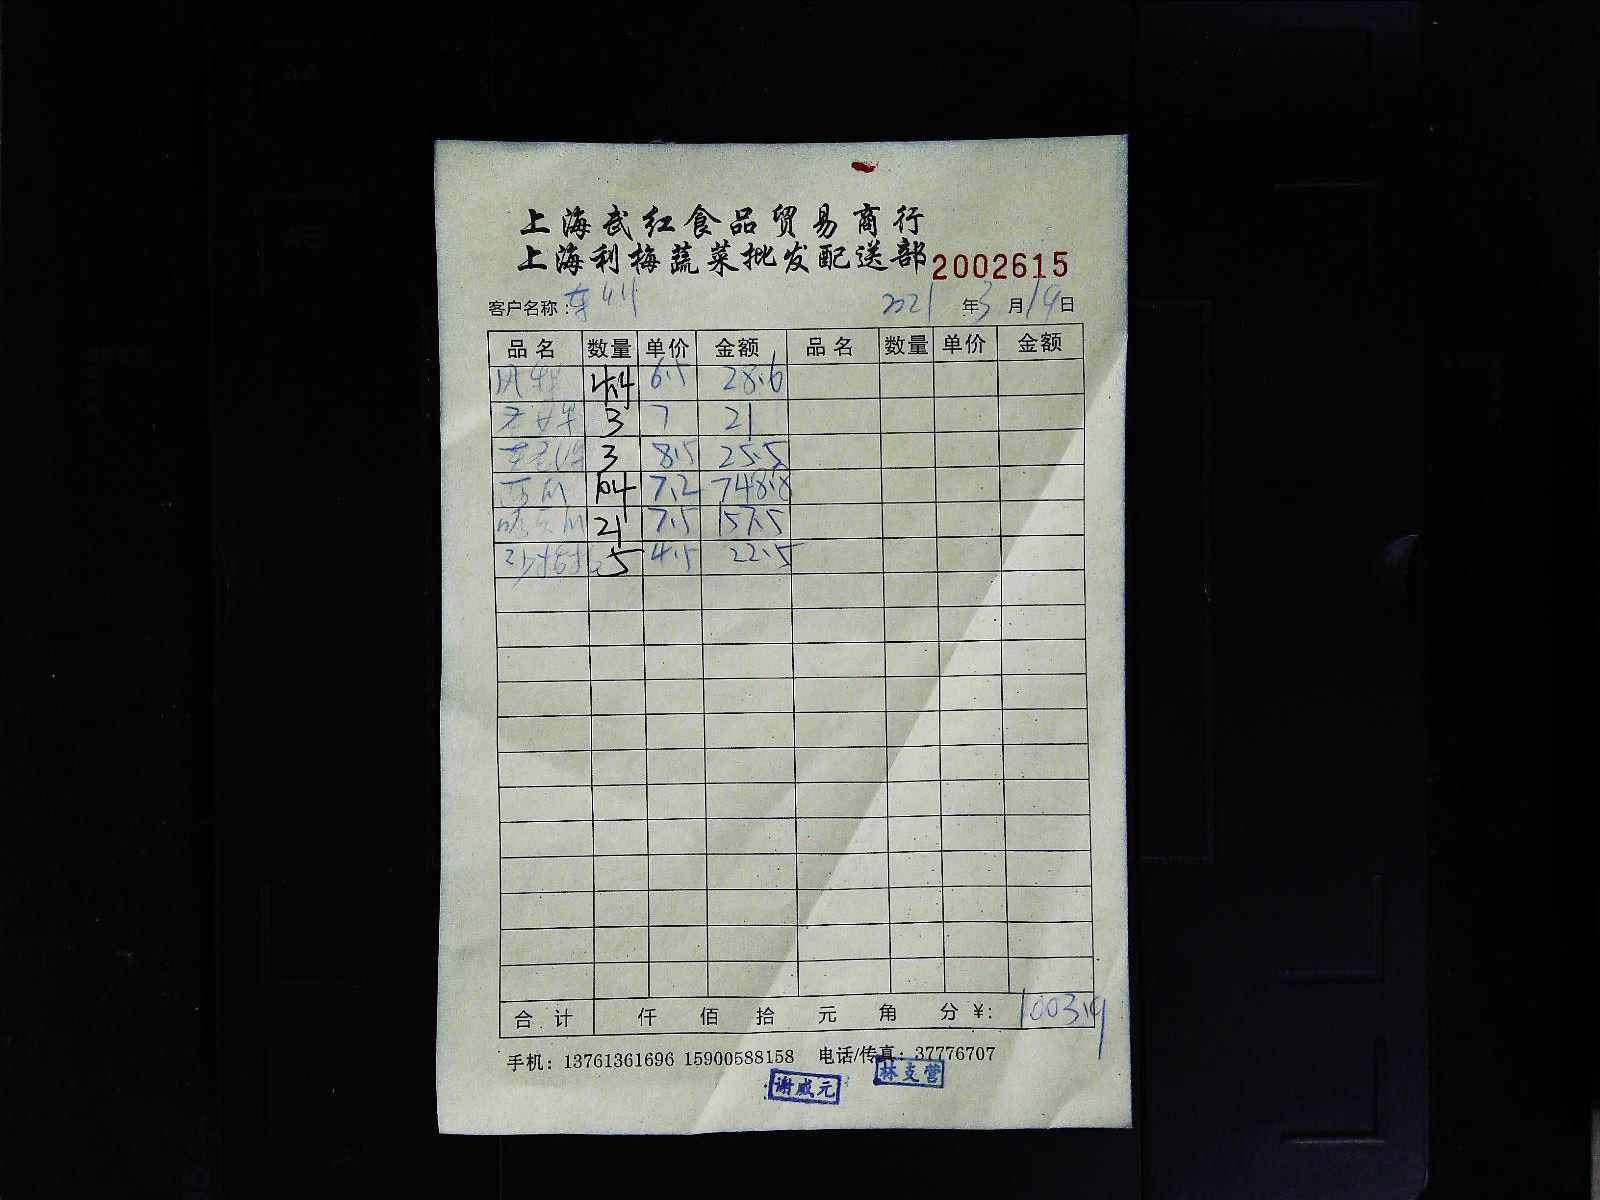 上海武红食品贸易商行
上海利梅蔬菜批发配送部 2002615
客户名称： 2021 年 3 月 19 日
品名 数量 单价 金额 品名 数量 单价 金额
4.4 6.5 28.6
3 7 21
3 8.5 25.5
西瓜 104 7.2 748.8
哈密瓜 21 7.5 157.5
5 4.5 22.5
合计 仟 佰 拾 元 角 分 ¥: 1003.9
手机：13761361696 15900588158 电话/传真：37776707
谢威元 林支营